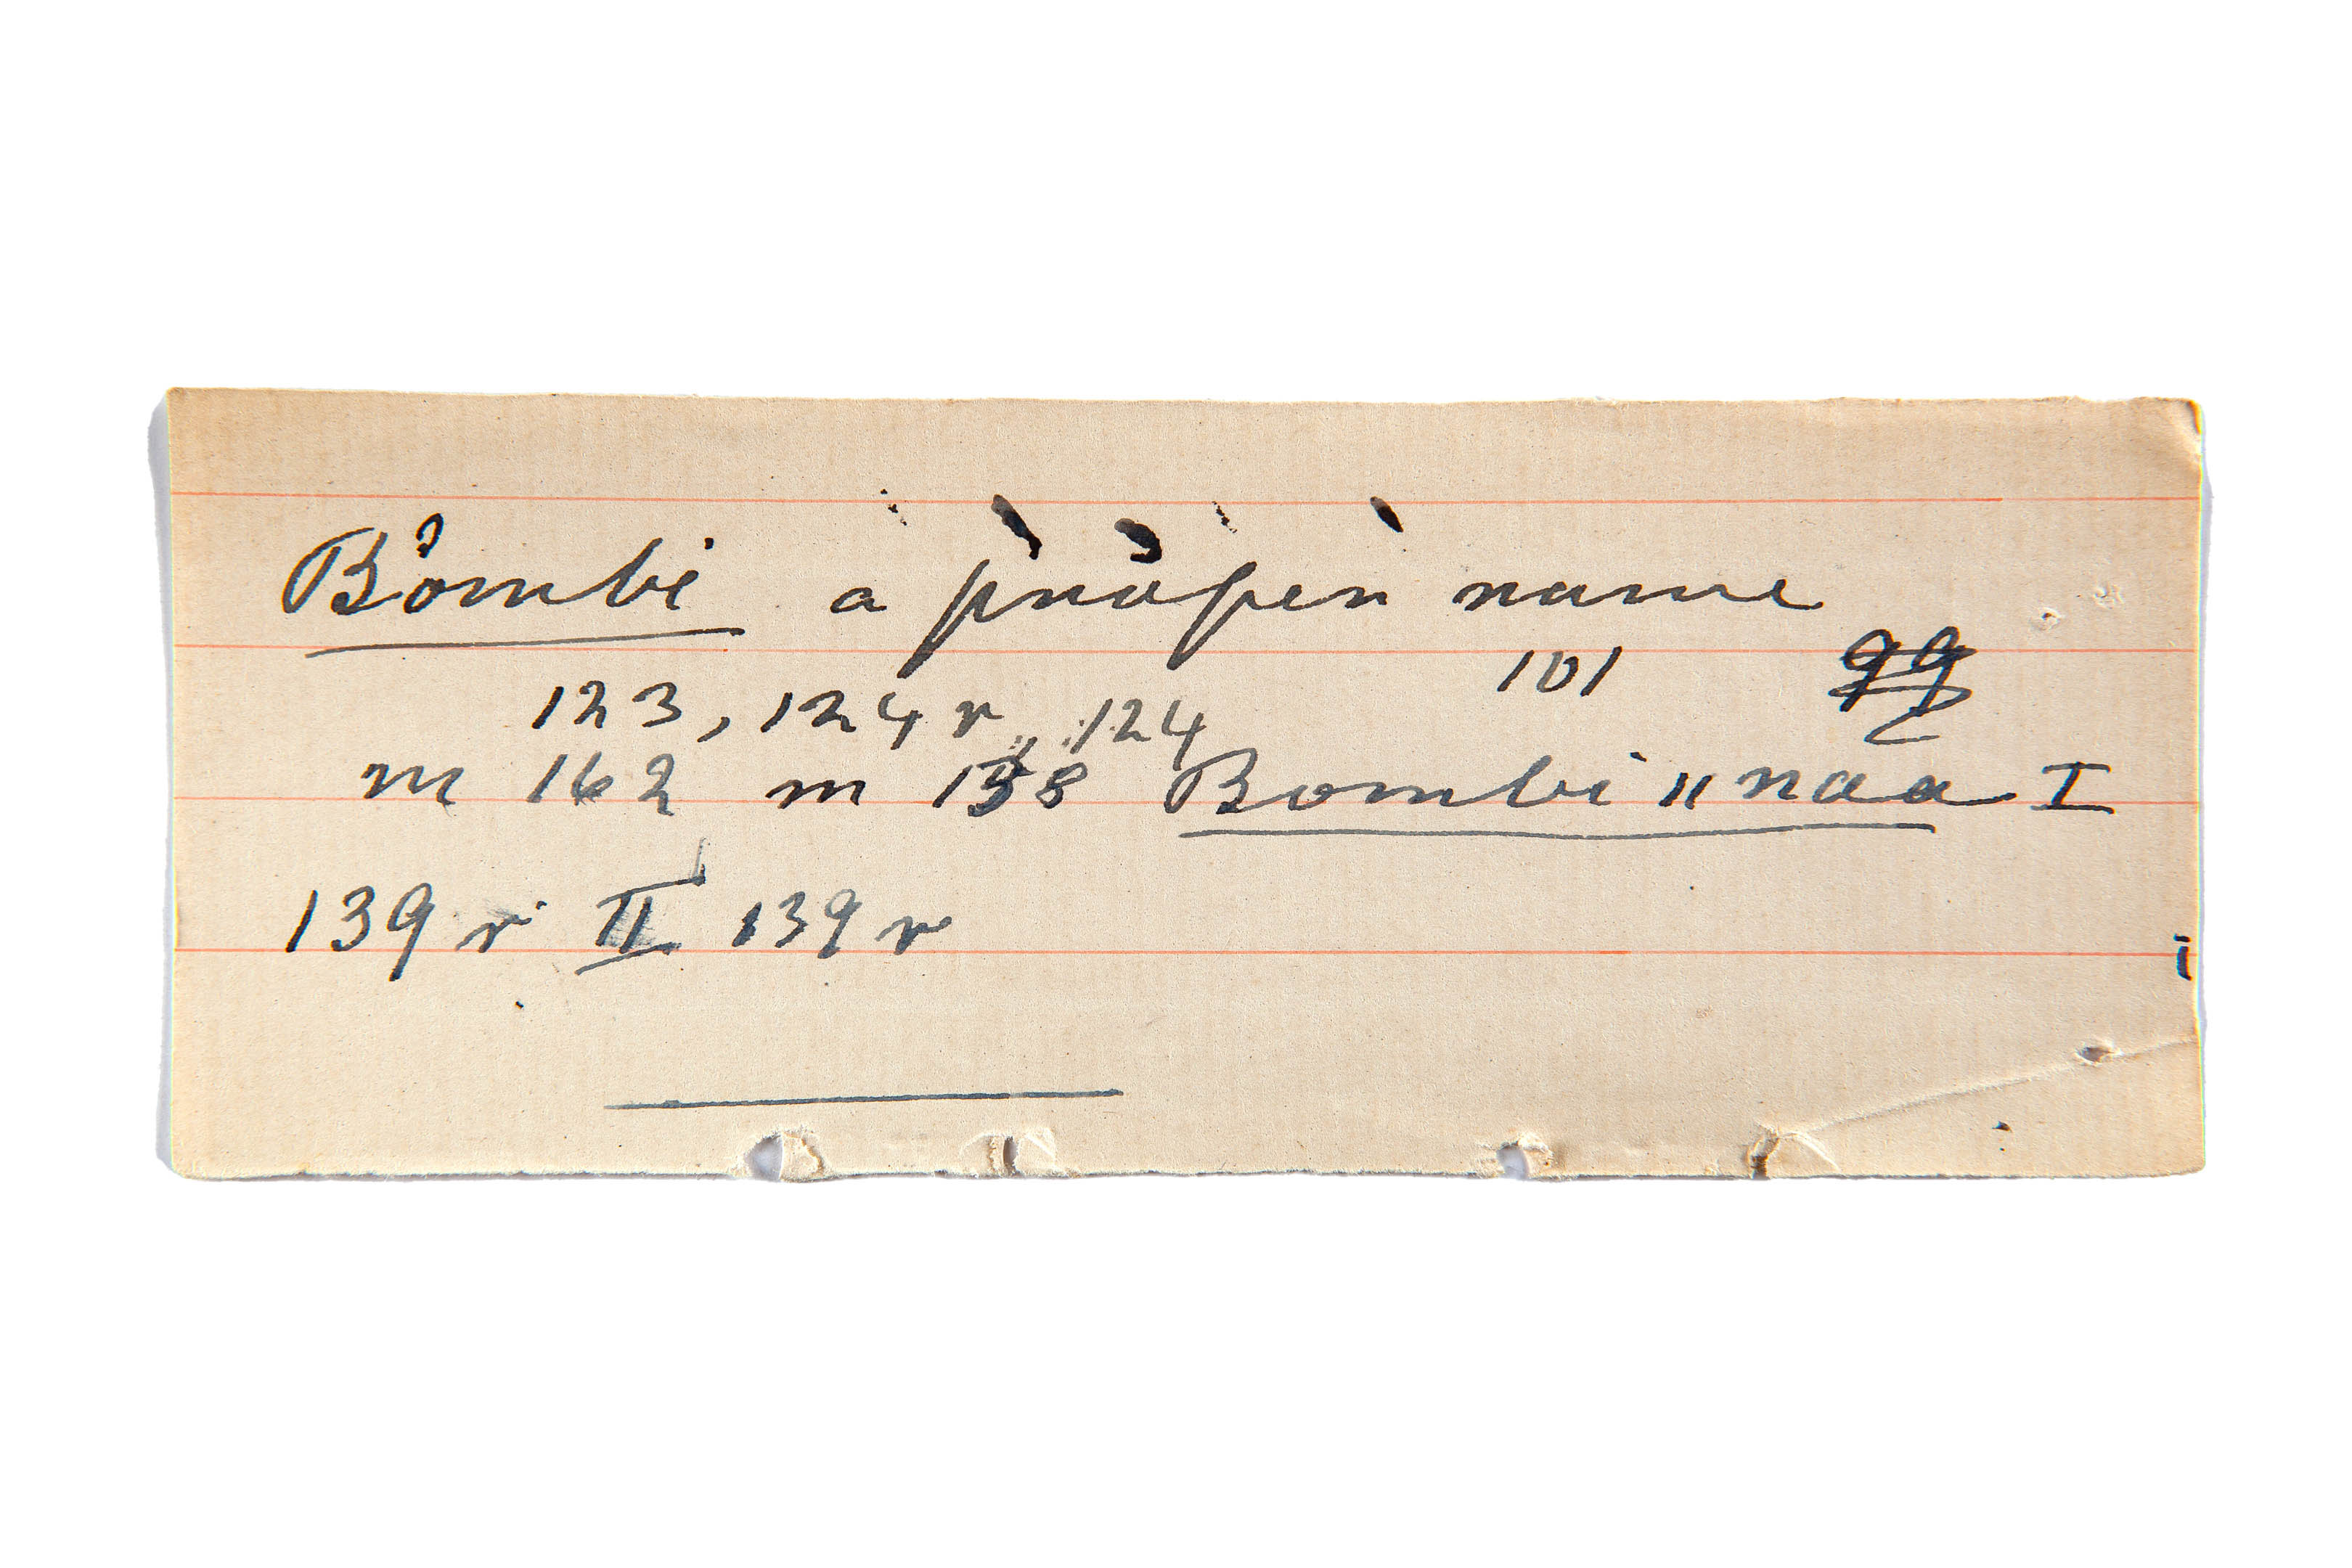 Bȯmbi a proper name
101 99
123, 124 r, 124
m 162 m 158 Bombi ıı naa I
139 r II 139 r